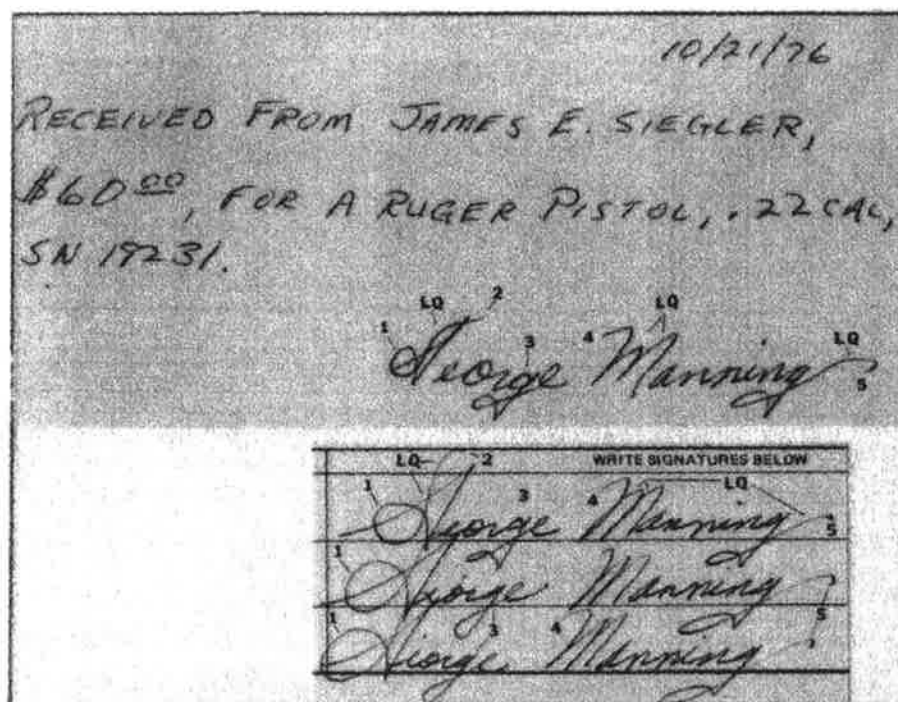 10/21/76
RECEIVED FROM JAMES E. SIEGLER,
$60 00, FOR A RUGER PISTOL, .22 CAL,
SN 19231.
LQ 2 LQ
1 3 4 LQ
George Manning
5
LQ 2 WRITE SIGNATURES BELOW
1 3 4 LQ
George Manning
5
1
George Manning
5
1 3 4
George Manning